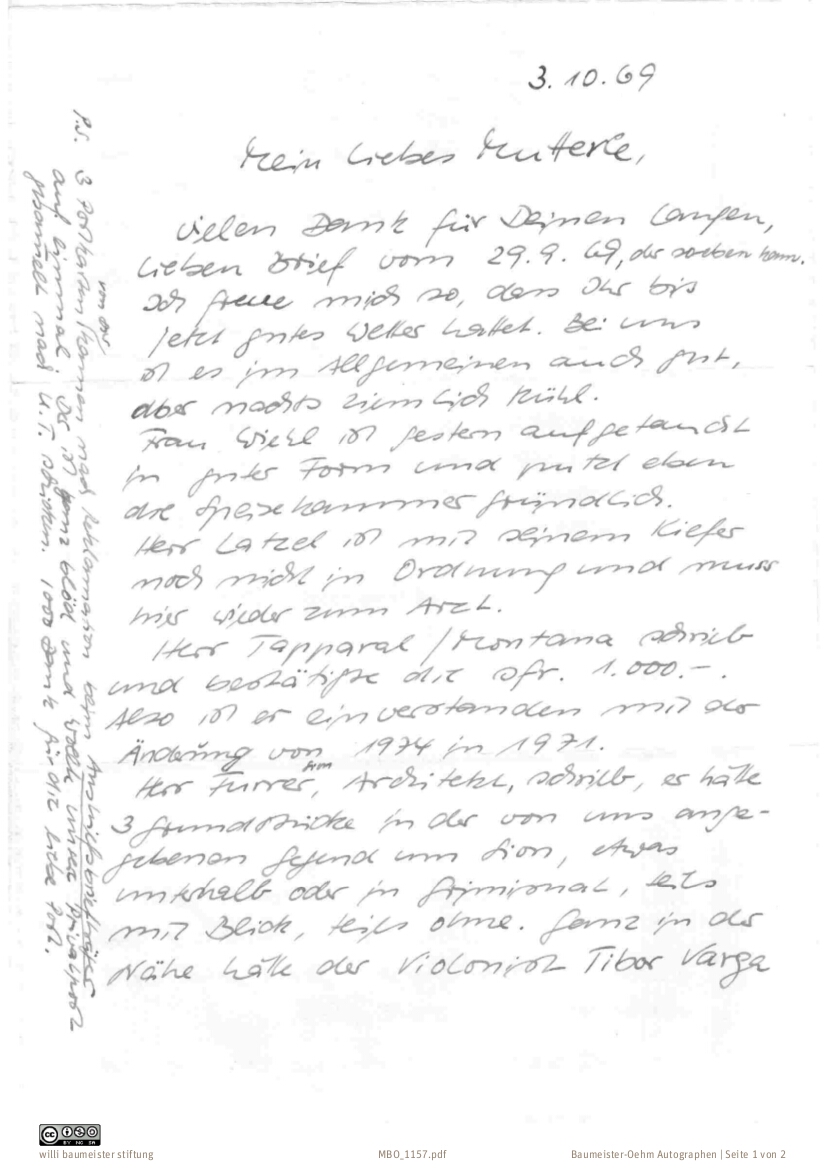 3.10.69
Mein liebes Mutterle,
vielen Dank für Deinen langen,
lieben Brief vom 29.9.69, der soeben kam.
Ich freue mich so, dass Ihr bis
jetzt gutes Wetter hattet. Bei uns
ist es im Allgemeinen auch gut,
aber nachts ziemlich kühl.
Frau Wiehl ist gestern aufgetaucht
in guter Form und putzt eben
die Speisekammer gründlich.
Herr Latzel ist mit seinem Kiefer
noch nicht in Ordnung und muss
hier wieder zum Arzt.
Herr Tapparal / Montana schrieb
und bestätigte die sfr. 1.000.-.
Also ist er einverstanden mit der
Änderung von 1974 in 1971.
Herr Furrer, Architekt, schrieb, er hätte
3 Grundstücke in der von uns ange-
gebenen Gegend um Sion, etwas
unterhalb oder in Grimisnat, teils
mit Blick, teils ohne. Ganz in der
Nähe hätte der Violonist Tibor Varga
P.S. 3 Postkarten kamen nach Reklamation beim Aushilfsbriefträger
von dir
auf einmal. Der ist ganz blöd und wollte unsere Privatpost
gesammelt nach U.T. schicken. 1000 Dank für die liebe Post.
willi baumeister stiftung
MBO_1157.pdf
Baumeister-Oehm Autographen | Seite 1 von 2